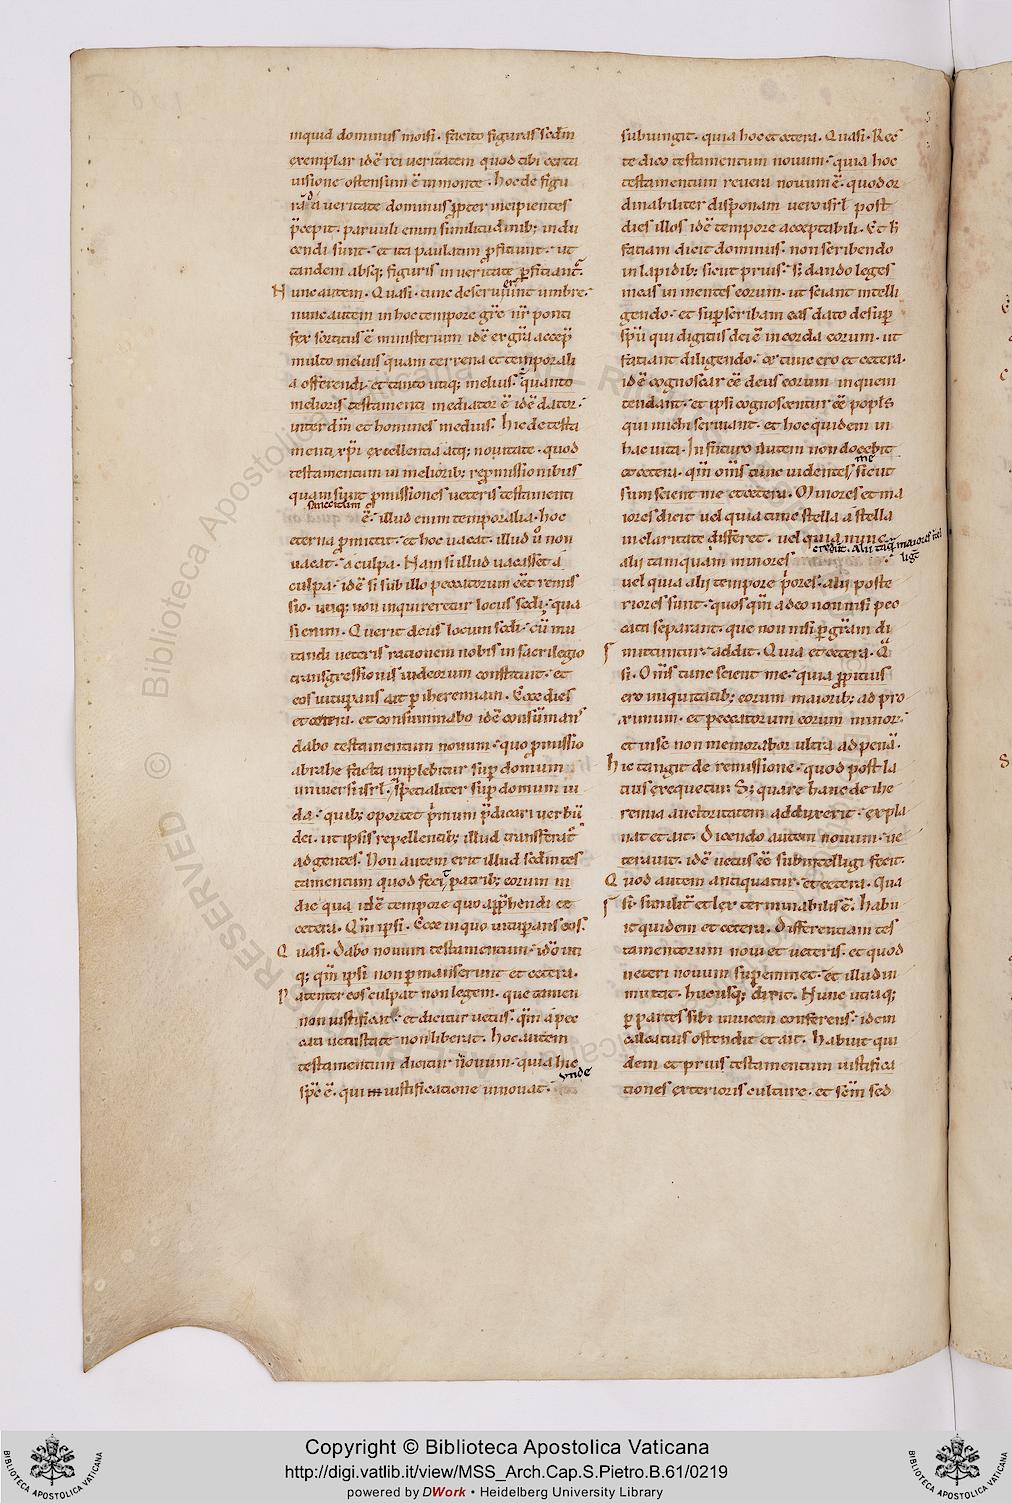 inquid dominus moisi. facito figuras scdm̄
exemplar idē rei ueritatem quod tibi certa
uisione ostensum ē in monte. hoc de figu
rā d̄ a ueritate dominus p̱pter incipientes
p̄cepit. paruuli enim similitudinib; indu
cendi sunt. et ita paulatim p̱ficiunt. ut
tandem absq; figuris in ueritate p̱ficiant̄.
Nunc autem. Quasi. tunc deseruierunt umbre.
nunc autem in hoc tempore gr̄e nr̄ ponti
fex sortitus ē ministerium idē ex gr̄a accep̄
multo melius quam terrena et temporali
a offerendi. et tanto utiq; melius. quanto
melioris testamenti mediator ē idē dator.
inter dm̄ et homines medius. hic de testa
menti xp̄i excellentia atq; nouitate. quod
testamentum in meliorib; repromissionibus
quam sunt p̱missiones ueteris testamenti
sanccitum
ē. illud enim temporalia. hoc
eterna p̱mittit. et hoc uacat. illud ū non
uacat. a culpa. Nam si illud uacasset a
culpa. idē si sub illo peccatorum eēt remis
sio. utiq; non inquireretur locus scdi. qua
si enim. Querit deus locum scdi. cū mu
tandi ueteris rationem nobis in sacrilegio
transgressionis iudeorum constituit. et
eos uitup̱ans ait p̱ iheremiam. Ecce dies
et cetera. et consummabo idē consūmans
dabo testamentum nouum. quo p̱missio
abrahe facta implebitur sup̱ domum
uniuersi isrl̄. specialiter sup̱ domum iu
da. quib; oportet p̱mum p̄dicari uerbū
dei. ut ipsis repellentib; illud transferat̄
ad gentes. Non autem erit illud scdm̄ tes
tamentum quod feci patrib; eorum in
die qua idē tempore quo app̄hendi et
cetera. Qm̄ ipsi. Ecce in quo uitup̱ans eos.
Quasi. Dabo nouum testamentum. idō uti
q; qm̄ ipsi non p̱manserunt et cetera.
Patenter eos culpat non legem. que tamen
non iustificat. et dicitur uetus. qm̄ a pec
cati uetustate non liberat. hoc autem
testamentum dicitur nouum. quia hic
unde
sp̄c ē. qui in iustificatione innouat.
subiungit. quia hoc et cetera. Quasi. Rec
te dico testamentum nouum. quia hoc
testamentum reuera nouum ē. quod or
dinabiliter disponam uero isrl̄ post
dies illos idē tempore acceptabili. Et h̄
faciam dicit dominus. non scribendo
in lapidib; sicut prius. s; dando leges
meas in mentes eorum. ut sciant intelli
gendo. et sup̱scribam eas dato desup̱
sp̄u qui digitus dei ē in corda eorum. ut
faciant diligendo. et tunc ero et cetera.
idē cognoscar eē deus eorum in quem
tendant. et ipsi cognoscentur eē popls̄
qui michi seruiant. et hoc quidem in
hac uita. In futuro autem non docebit
et cetera. qm̄ om̄s tunc uidentes me sicut
sum scient me et cetera. Minores et ma
iores dicit uel quia tunc stella a stella
in claritate differet. uel quia nunc
credūt. Alii taq̄ maiores
alii tamquam minores.
uel quia alii tempore p̱ores. alii poste
riores sunt. quos qm̄ adeo non nisi pec
cata separant. que non nisi p̱ gr̄am di
mittuntur. addit. Quia et cetera. Q̄
si. Om̄s tunc scient me. quia p̱pitius
ero iniquitatib; eorum maiorib; ad pro
ximum. et peccatorum eorum minor.
et in se non memorabor ultra ad penā.
hic tangit de remissione. quod post la
tius exequetur. S; quare hanc de ihe
remia auctoritatem adduxerit. expla
nat et ait. Dicendo autem nouum. ue
terauit. idē uetus eē subintelligi fecit.
Quod autem antiquatur. et cetera. Qua
si. similit̄ et lex terminabilis ē. Habu
it quidem et cetera. Differentiam tes
tamentorum noui et ueteris. et quod
ueteri nouum sup̱eminet. et illud in
mutat. hucusq; dixit. Nunc utraq;
p̱ partes sibi inuicem conferens. idem
ostendit et ait. Habuit qui
dem et prius testamentum iustifica
tiones exterioris culture. et scm̄ sed
© Biblioteca Apostolica Vaticana
RESERVED
Copyright © Biblioteca Apostolica Vaticana
http://digi.vatlib.it/view/MSS_Arch.Cap.S.Pietro.B.61/0219
powered by DWork • Heidelberg University Library
BIBLIOTECA APOSTOLICA VATICANA
BIBLIOTECA APOSTOLICA VATICANA